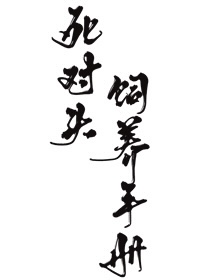 死对头
饲养手册